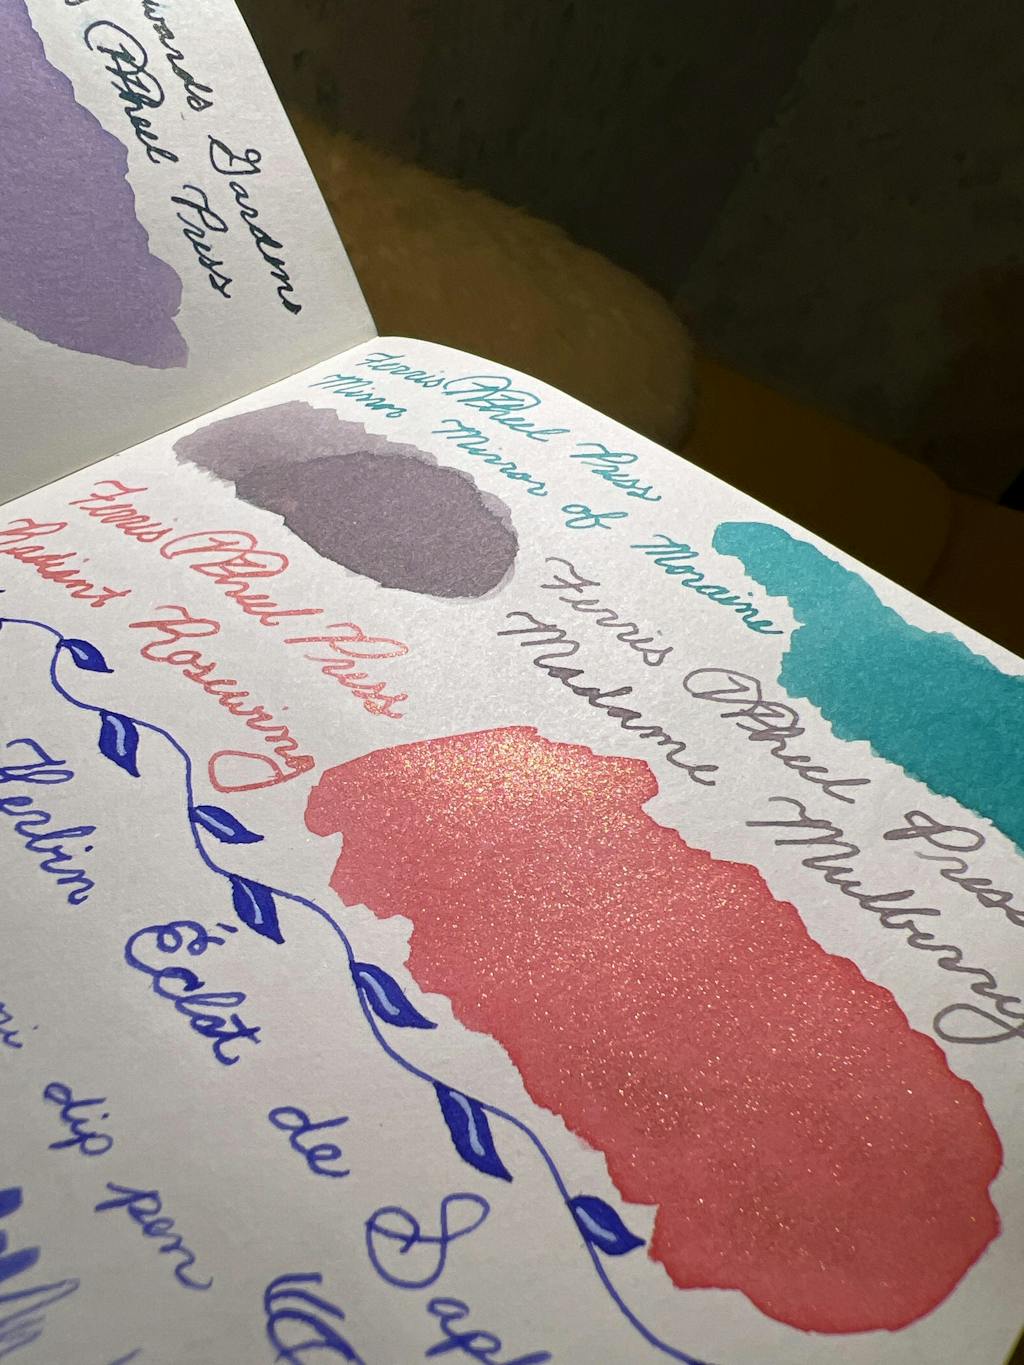 wards Gardens
Wheel Press
Ferris Wheel Press
Mirror Mirror of Moraine
Ferris Wheel Press
Madame Mulberry
Ferris Wheel Press
Radiant Rosewing
Herbin Éclat de Saph
dip pen